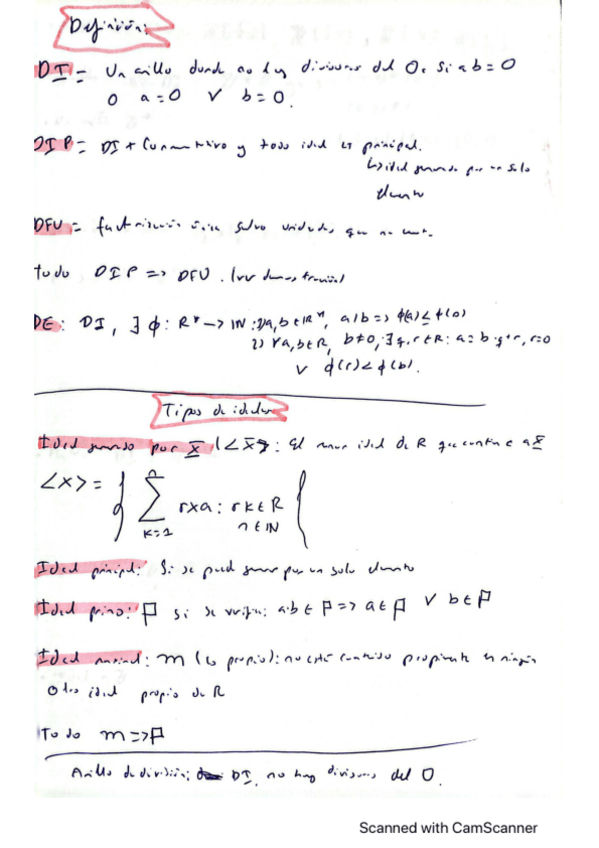 Definición:
DI = Un anillo donde no hay divisores del 0. Si ab = 0
o a=0 ∨ b=0.
DIP = DI + Conmutativo y todo ideal es principal.
↳ ideal generado por un solo
elemento
DFU = factorización única salvo unidades, que no
todo DIP => DFU.
DE: DI, ∃ φ: R* -> IN: 1) a,b∈R*, a/b => φ(a) ≤ φ(b)
2) ∀a,b∈R, b≠0, ∃ q,r∈R: a=b·q+r, r=0
∨ φ(r)<φ(b).
Tipos de ideales
Ideal generado por X (<X>): El menor ideal de R que contiene a X
<X> = { ∑ rxa : rk∈R
k=1 n∈IN
Ideal principal: Si se puede generar por un solo elemento
Ideal primo: P si se verifica: a·b∈P => a∈P ∨ b∈P
Ideal maximal: m (es propio): no está contenido propiamente en ningún
otro ideal propio de R
Todo m => P
Anillo de división: DI, no hay divisores del 0.
Scanned with CamScanner